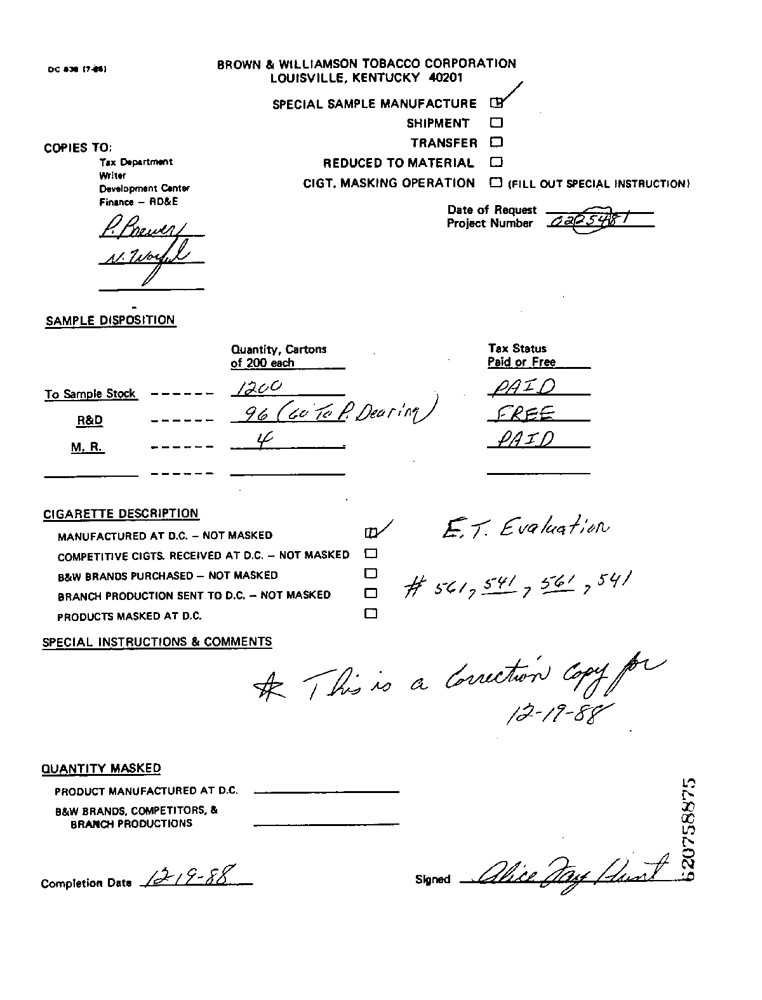 DC 838 (7-86)
BROWN & WILLIAMSON TOBACCO CORPORATION
LOUISVILLE, KENTUCKY 40201
SPECIAL SAMPLE MANUFACTURE
SHIPMENT
TRANSFER
REDUCED TO MATERIAL
CIGT. MASKING OPERATION (FILL OUT SPECIAL INSTRUCTION)
COPIES TO:
Tax Department
Writer
Development Center
Finance – RD&E
P. Brewer
N.
Date of Request
Project Number
SAMPLE DISPOSITION
Quantity, Cartons of 200 each Tax Status Paid or Free
To Sample Stock ------ 1200 PAID
R&D ------ 96 (Go To P. Dearing) FREE
M. R. ------ 4 PAID
------
CIGARETTE DESCRIPTION
MANUFACTURED AT D.C. – NOT MASKED
E.T. Evaluation
COMPETITIVE CIGTS. RECEIVED AT D.C. – NOT MASKED
B&W BRANDS PURCHASED – NOT MASKED
# 561, 541, 561, 541
BRANCH PRODUCTION SENT TO D.C. – NOT MASKED
PRODUCTS MASKED AT D.C.
SPECIAL INSTRUCTIONS & COMMENTS
* This is a Correction Copy for
12-19-88
QUANTITY MASKED
PRODUCT MANUFACTURED AT D.C.
B&W BRANDS, COMPETITORS, &
BRANCH PRODUCTIONS
Completion Date 12-19-88
Signed Alice Fay Hunt
620758875